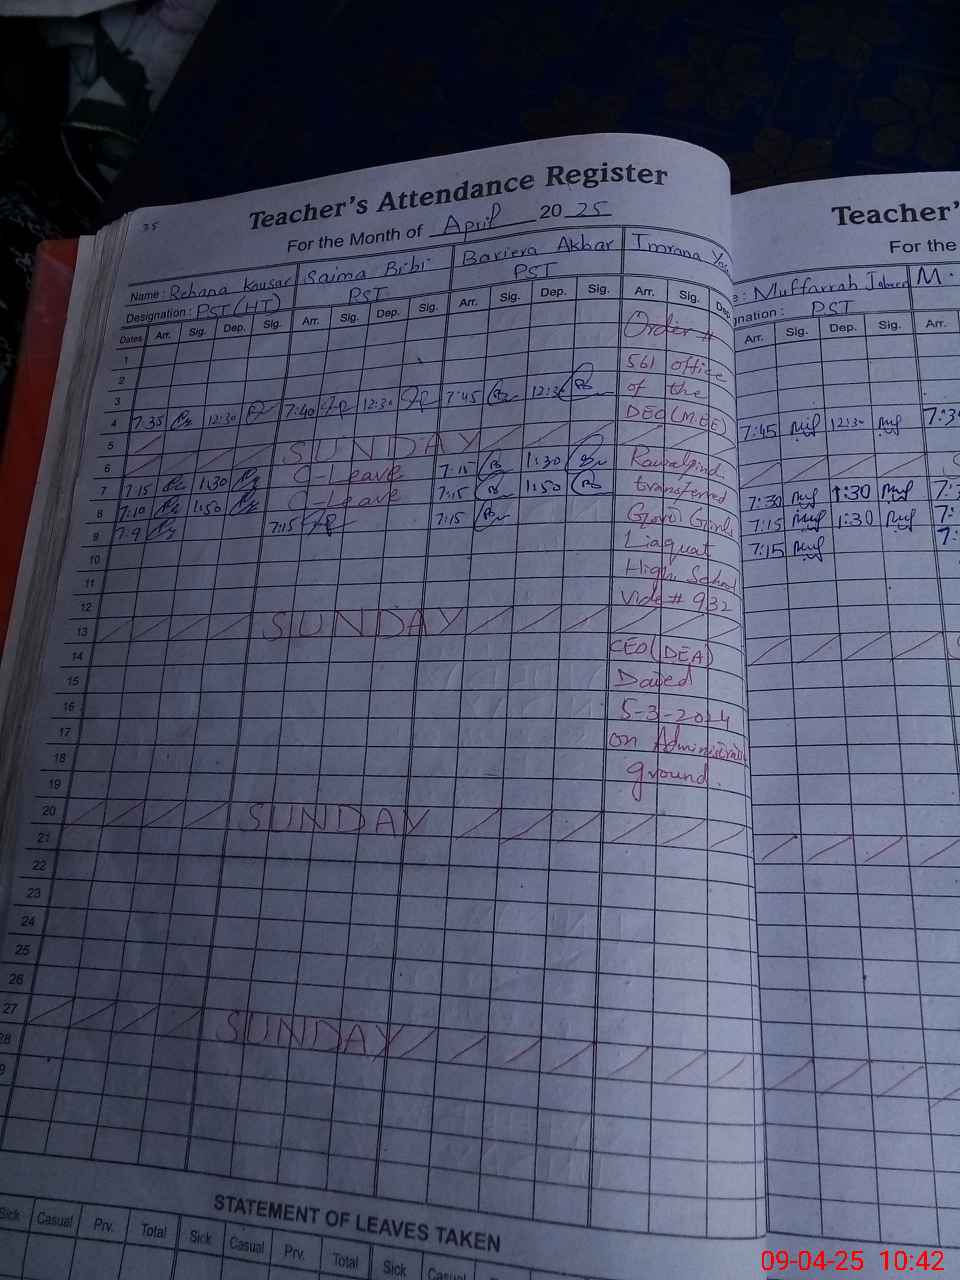 35
Teacher's Attendance Register
For the Month of April 2025
Name: Rehana Kousar Saima Bibi Bariera Akbar Imrana
Designation: PST (HT) PST PST
Dates Arr. Sig. Dep. Sig. Arr. Sig. Dep. Sig. Arr. Sig. Dep. Sig. Arr. Sig. Dep
1 Order #
2 561 office
3 of the
4 7:35 12:30 7:40 12:30 7:45 12:30 DEO (M.EE)
5
6 SUNDAY Rawalpindi
7 7:15 1:30 C-Leave 7:15 1:30 transferred
8 7:10 1:50 C-Leave 7:15 1:50 Govt Girls
9 7:9 7:15 7:15 Liaquat
10 High School
11 Vide # 932
12
13 SUNDAY CEO (DEA)
14 Dated
15 5-3-2024
16 on Administrati
17 ground.
18
19
20 SUNDAY
21
22
23
24
25
26
27 SUNDAY
28
9
STATEMENT OF LEAVES TAKEN
Sick Casual Prv. Total Sick Casual Prv. Total Sick Casual
Teacher'
For the
e: Muffarrah M.
nation: PST
Arr. Sig. Dep. Sig. Arr.
7:45 12:30 7:3
7:30 1:30 7:
7:15 1:30 7:
7:15 7:
09-04-25 10:42